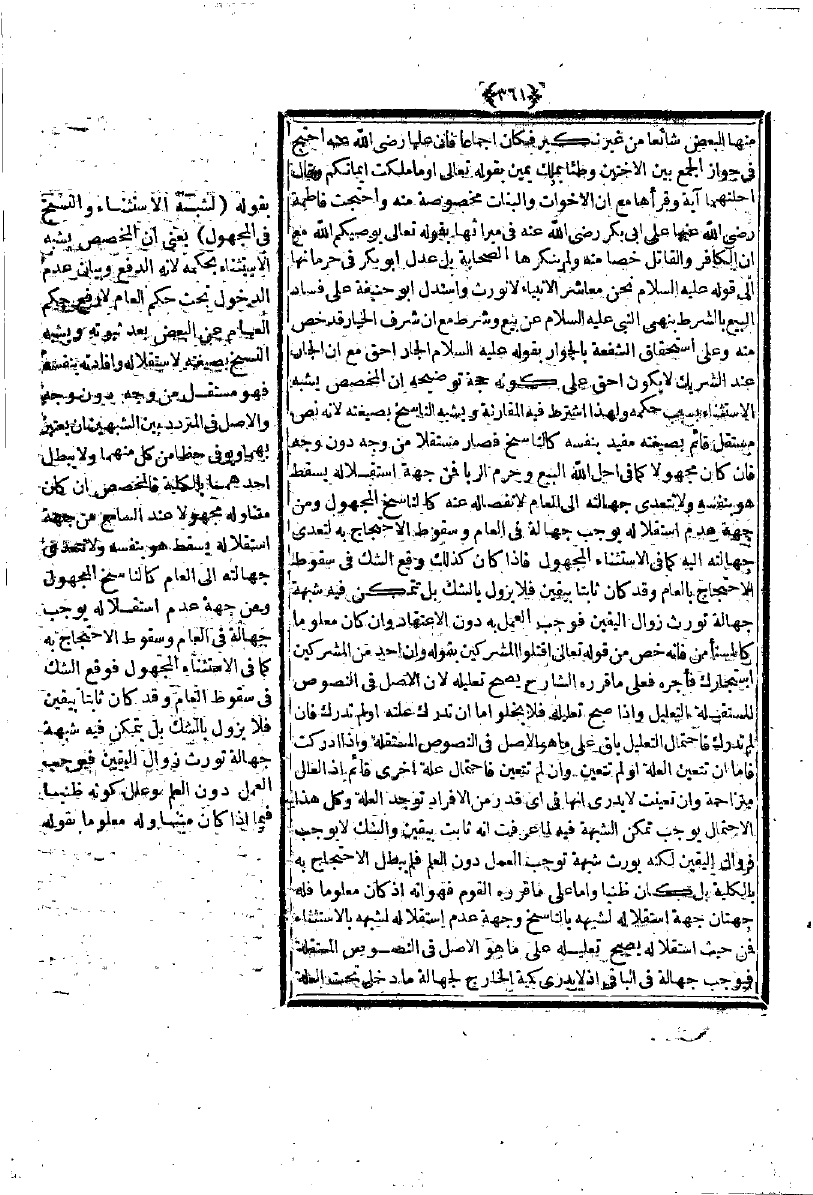 ﴿٣٦١﴾
منها البعض شائعا من غير نكير فكان اجماعا فان عليا رضى الله عنه احتج
فى جواز الجمع بين الاختين وطئا بملك يمين بقوله تعالى او ما ملكت ايمانكم وقال
احلتهما آية وقرأها مع ان الاخوات والبنات مخصوصة منه واحتجت فاطمة
رضى الله عنها على ابى بكر رضى الله عنه فى ميراثها بقوله تعالى يوصيكم الله مع
ان الكافر والقاتل خصا منه ولم ينكرها الصحابة بل عدل ابو بكر فى حرمانها
الى قوله عليه السلام نحن معاشر الانبياء لا نورث واستدل ابو حنيفة على فساد
البيع بالشرط بنهى النبى عليه السلام عن بيع وشرط مع ان شرف الخيار قد خص
منه وعلى استحقاق الشفعة بالجوار بقوله عليه السلام الجار احق مع ان الجار
عند الشريك لا يكون احق على كونه حجة توضيحه ان المخصص يشبه
الاستثناء بسبب حكمه ولهذا اشترط فيه المقارنة ويشبه الناسخ بصيغته لانه نص
مستقل قائم بصيغته مفيد بنفسه كالناسخ فصار مستقلا من وجه دون وجه
فان كان مجهولا كما فى احل الله البيع وحرم الربا فمن جهة استقلاله يسقط
هو بنفسه ولا تتعدى جهالته الى العام لانفصاله عنه كالناسخ المجهول ومن
جهة عدم استقلاله يوجب جهالة فى العام وسقوط الاحتجاج به لتعدى
جهالته اليه كما فى الاستثناء المجهول فاذا كان كذلك وقع الشك فى سقوط
الاحتجاج بالعام وقد كان ثابتا بيقين فلا يزول بالشك بل تتمكن فيه شبهة
جهالة تورث زوال اليقين فوجب العمل به دون الاعتقاد وان كان معلوما
كالمستأمن فانه خص من قوله تعالى اقتلوا المشركين بقوله وان احد من المشركين
استجارك فأجره فعلى ما قرره الشارح يصح تعليله لان الاصل فى النصوص
المستقلة التعليل واذا صح تعليله فلا يخلو اما ان تدرك علته او لم تدرك فان
لم تدرك فاحتمال التعليل باق على ما هو الاصل فى النصوص المستقلة واذا ادركت
فاما ان تتعين العلة او لم تتعين وان لم تتعين فاحتمال علة اخرى قائم اذ العلل
متزاحمة وان تعينت لا يدرى انها فى اى قدر من الافراد توجد العلة وكل هذا
الاحتمال يوجب تمكن الشبهة فيه لما عرفت انه ثابت بيقين والشك لا يوجب
زوال اليقين لكنه يورث شبهة توجب العمل دون العلم فلم يبطل الاحتجاج به
بالكلية بل كان ظنيا واما على ما قرره القوم فهو انه اذ كان معلوما فله
جهتان جهة استقلاله لشبهه بالناسخ وجهة عدم استقلاله لشبهه بالاستثناء
فمن حيث استقلاله يصح تعليله على ما هو الاصل فى النصوص المستقلة
فيوجب جهالة فى الباقى اذ لا يدرى كمية الخارج لجهالة ما دخل تحت العلة
بقوله (لشبهة الاستثناء والنسخ
فى المجهول) يعنى ان المخصص يشبه
الاستثناء بحكمه لانه الدفع وبيانى عدم
الدخول تحت حكم العام لا رفع حكم
العام عن البعض بعد ثبوته ويشبه
النسخ بصيغته لاستقلاله وافادته بنفسه
فهو مستقل من وجه دون وجه
والاصل فى المتردد بين الشبهين ان يعتبر
بهما ويوفى حظا من كل منهما ولا يبطل
احدهما بالكلية فالمخصص ان كان
متناوله مجهولا عند السامع من جهة
استقلاله يسقط هو بنفسه ولا تتعدى
جهالته الى العام كالناسخ المجهول
ومن جهة عدم استقلاله يوجب
جهالة فى العام وسقوط الاحتجاج به
كما فى الاستثناء المجهول فوقع الشك
فى سقوط العام وقد كان ثابتا بيقين
فلا يزول بالشك بل يتمكن فيه شبهة
جهالة تورث زوال اليقين فيوجب
العمل دون العلم وعلل كونه ظنيا
فيما اذا كان متناوله معلوما بقوله